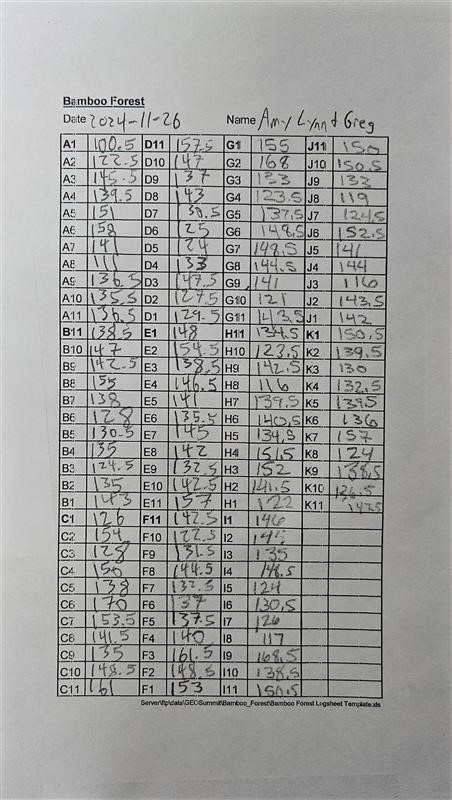 Bamboo Forest
Date 2024-11-26 Name Amy Lynn + Greg
A1 100.5 D11 157.5 G1 155 J11 150
A2 122.5 D10 147 G2 168 J10 150.5
A3 145.5 D9 137 G3 133 J9 133
A4 139.5 D8 143 G4 123.5 J8 119
A5 151 D7 G5 137.5 J7 124.5
A6 158 D6 125 G6 148.5 J6 152.5
A7 141 D5 124 G7 149.5 J5 141
A8 111 D4 133 G8 144.5 J4 144
A9 136.5 D3 147.5 G9 141 J3 116
A10 135.5 D2 127.5 G10 121 J2 143.5
A11 136.5 D1 129.5 G11 143.5 J1 142
B11 138.5 E1 148 H11 134.5 K1 150.5
B10 147 E2 154.5 H10 123.5 K2 139.5
B9 142.5 E3 138.5 H9 142.5 K3 130
B8 155 E4 146.5 H8 116 K4 132.5
B7 138 E5 141 H7 139.5 K5 139.5
B6 128 E6 135.5 H6 140.5 K6 136
B5 130.5 E7 145 H5 134.5 K7 157
B4 135 E8 142 H4 151.5 K8 124
B3 124.5 E9 132.5 H3 152 K9 138.5
B2 135 E10 142.5 H2 141.5 K10 136.5
B1 143 E11 157 H1 122 K11
C1 126 F11 142.5 I1 146
C2 154 F10 122.5 I2 145
C3 128 F9 131.5 I3 135
C4 150 F8 144.5 I4 148.5
C5 138 F7 132.5 I5 124
C6 170 F6 137 I6 130.5
C7 153.5 F5 137.5 I7 126
C8 141.5 F4 140 I8 117
C9 135 F3 161.5 I9 168.5
C10 148.5 F2 148.5 I10 138.5
C11 161 F1 153 I11 150.5
Server\ftp\data\GEOSummit\Bamboo_Forest\Bamboo Forest Logsheet Template.xls